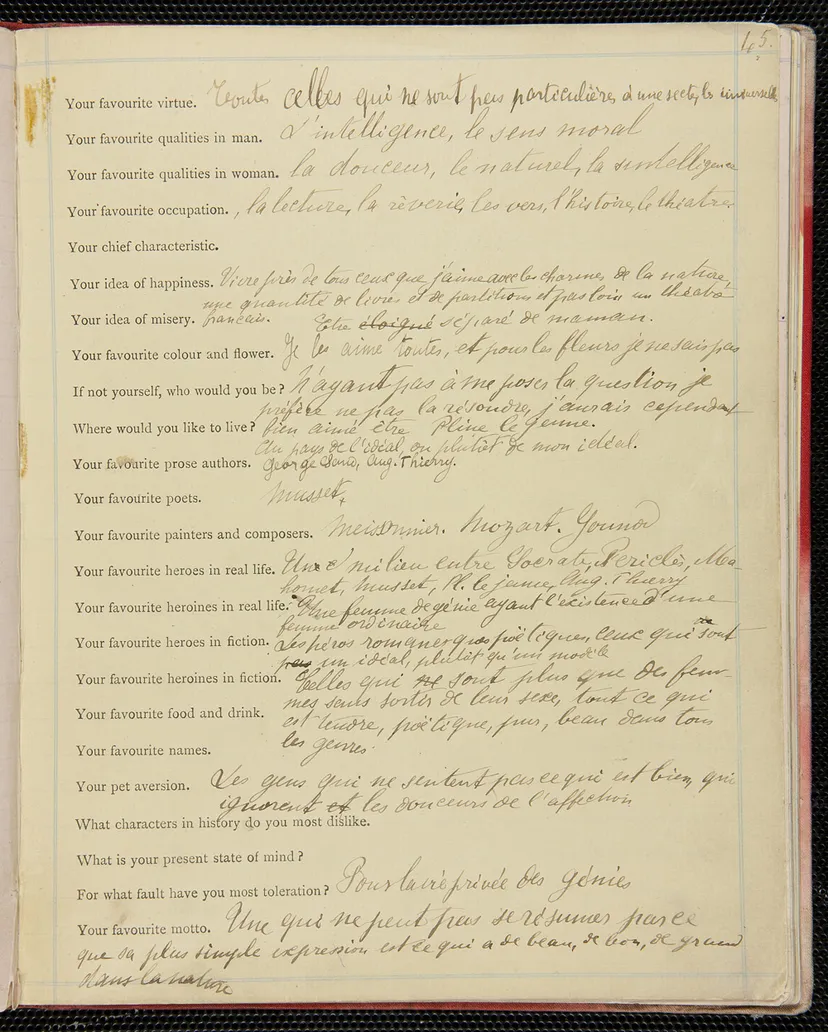 45.
Your favourite virtue. Toutes celles qui ne sont pas particulières à une secte, les universelles
Your favourite qualities in man. L'intelligence, le sens moral
Your favourite qualities in woman. la douceur, le naturel, la intelligence
Your favourite occupation. , la lecture, la rêverie, les vers, l'histoire, le théâtre
Your chief characteristic.
Your idea of happiness. Vivre près de tous ceux que j'aime avec les charmes de la nature,
une quantité de livres et de partitions, et pas loin un théâtre
Your idea of misery. français. Etre éloigné séparé de maman.
Your favourite colour and flower. Je les aime toutes, et pour les fleurs je ne sais pas
If not yourself, who would you be? N'ayant pas à me poser la question je
préfère ne pas la résoudre, j'aurais cependant
Where would you like to live? bien aimé être Pline le jeune.
Au pays de l'idéal, ou plutôt de mon idéal.
Your favourite prose authors. George Sand, Aug. Thierry.
Your favourite poets. Musset
Your favourite painters and composers. Meissonnier. Mozart. Gounod
Your favourite heroes in real life. Un milieu entre Socrate, Périclès, Ma-
homet, Musset, Pl. le jeune, Aug. Thierry
Your favourite heroines in real life. Une femme de génie ayant l'existence d'une
femme ordinaire
Your favourite heroes in fiction. Les héros romanesques poëtiques, ceux qui sont
pas un idéal, plutôt qu'un modèle
Your favourite heroines in fiction. Celles qui ne sont plus que des fem-
mes sans sortir de leur sexe, tout ce qui
Your favourite food and drink. est tendre, poëtique, pur, beau dans tous
les genres.
Your favourite names.
Your pet aversion. Les gens qui ne sentent pas ce qui est bien, qui
ignorent et les douceurs de l'affection
What characters in history do you most dislike.
What is your present state of mind?
For what fault have you most toleration? Pour la vie privée des génies
Your favourite motto. Une qui ne peut pas se résumer parce
que sa plus simple expression est ce qui a de beau, de bon, de grand
dans la nature